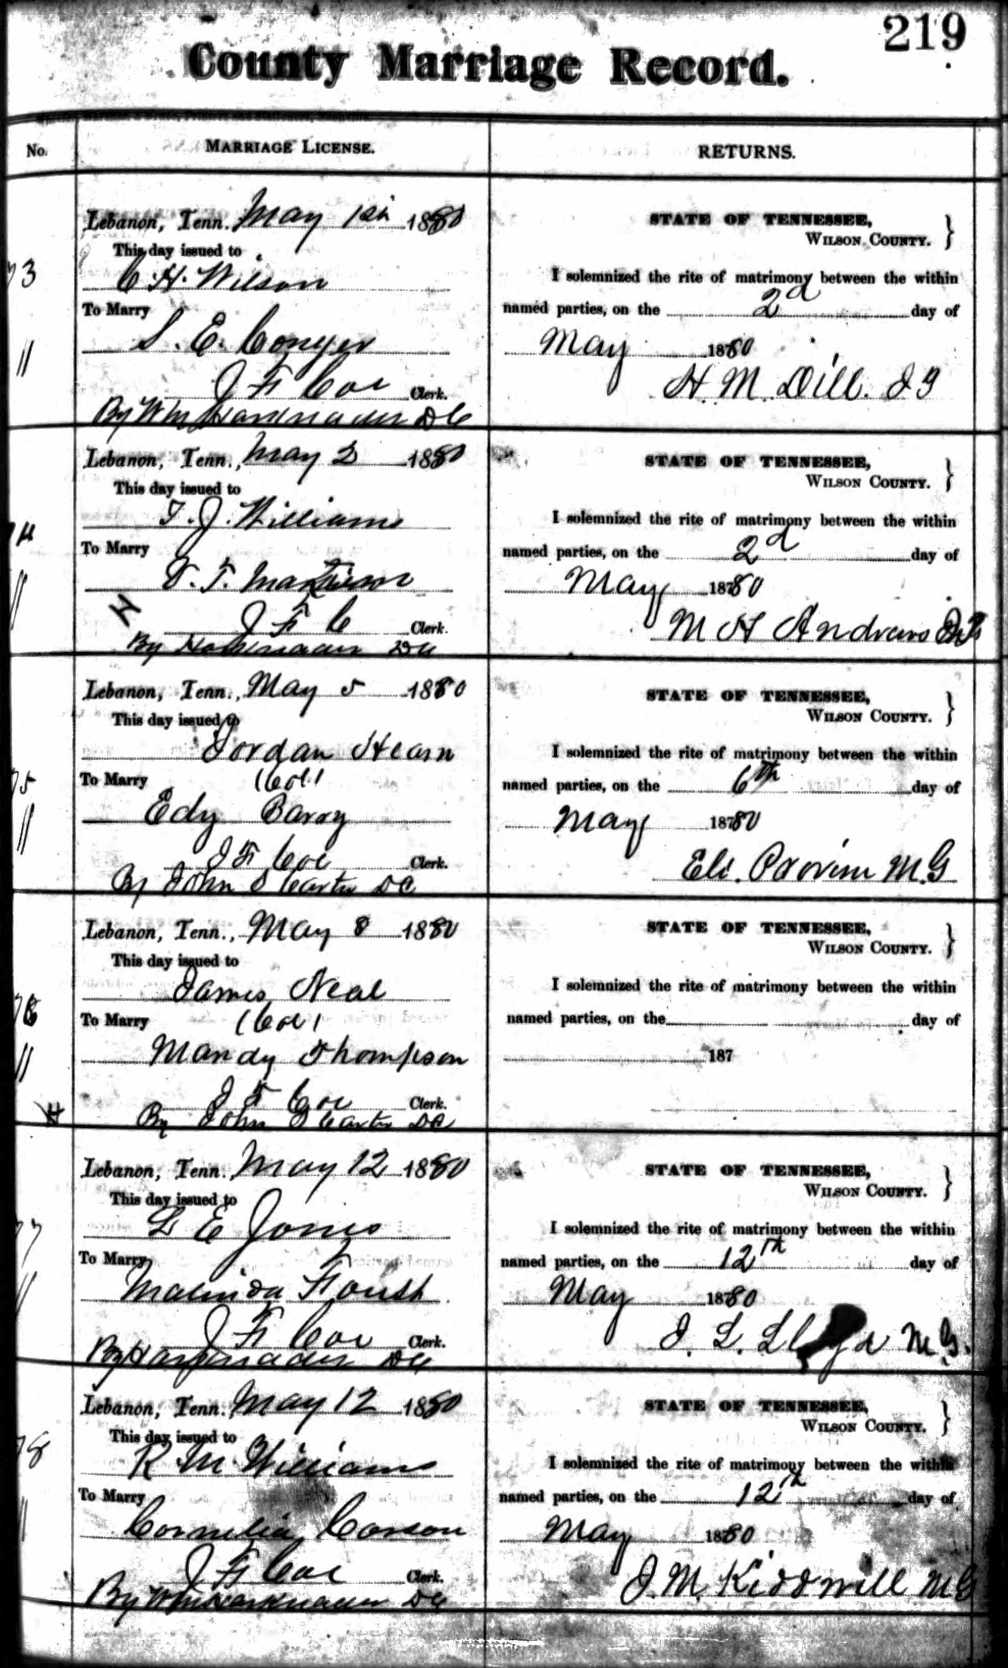 219
County Marriage Record.
No.
MARRIAGE LICENSE.
RETURNS.
73
Lebanon, Tenn. May 1st 1880
This day issued to
C. H. Wilson
To Marry
S. E. Conyer
J F Coe Clerk.
By Wm DC
STATE OF TENNESSEE,
WILSON COUNTY.
I solemnized the rite of matrimony between the within
named parties, on the 2d day of
May 1880
H. M. Dill. J P
74
Lebanon, Tenn., May 2 1880
This day issued to
T. J. Williams
To Marry
T.
J F C Clerk.
By DC
STATE OF TENNESSEE,
WILSON COUNTY.
I solemnized the rite of matrimony between the within
named parties, on the 2d day of
May 1880
M H Andrews
75
Lebanon, Tenn., May 5 1880
This day issued to
Jordan Hearn
To Marry (Col)
Edy Barry
J F Coe Clerk.
By John Carter DC
STATE OF TENNESSEE,
WILSON COUNTY.
I solemnized the rite of matrimony between the within
named parties, on the 6th day of
May 1880
Eli. M.G
76
Lebanon, Tenn., May 8 1880
This day issued to
James Neal
To Marry (Col)
Mandy Thompson
J F Coe Clerk.
By John Carter DC
STATE OF TENNESSEE,
WILSON COUNTY.
I solemnized the rite of matrimony between the within
named parties, on the day of
187
77
Lebanon, Tenn. May 12 1880
This day issued to
L E Jones
To Marry
Malinda Foust
J F Coe Clerk.
By DC
STATE OF TENNESSEE,
WILSON COUNTY.
I solemnized the rite of matrimony between the within
named parties, on the 12th day of
May 1880
J. L. M.G.
78
Lebanon, Tenn. May 12 1880
This day issued to
R M Williams
To Marry
Cornelia Carson
J F Coe Clerk.
By Wm DC
STATE OF TENNESSEE,
WILSON COUNTY.
I solemnized the rite of matrimony between the within
named parties, on the 12th day of
May 1880
J. M. Kidwill MG